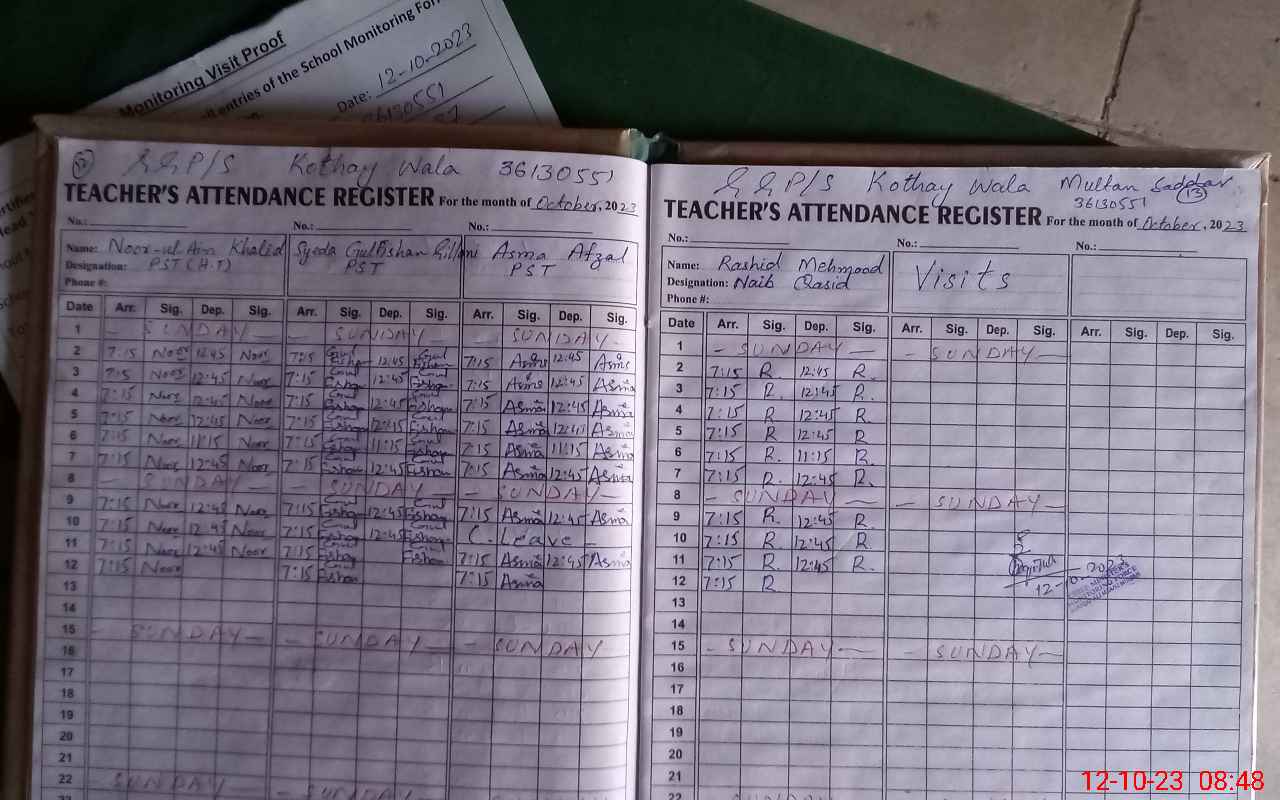 Monitoring Visit Proof
entries of the School Monitoring For
Date: 12-10-2023
36130551
12 G G P/S Kothay Wala 36130551
TEACHER'S ATTENDANCE REGISTER For the month of October, 2023
No.: No.: No.:
Name: Noor-ul-Ain Khalid Syeda Gulfishan Gillani Asma Afzal
Designation: PST (H.T) PST PST
Phone #:
Date Arr. Sig. Dep. Sig. Arr. Sig. Dep. Sig. Arr. Sig. Dep. Sig.
1 - SUNDAY - SUNDAY - SUNDAY
2 7:15 Noor 12:45 Noor 7:15 Gul Fishan 12:45 Gul Fishan 7:15 Asma 12:45 Asma
3 7:15 Noor 12:45 Noor 7:15 Gul Fishan 12:45 Gul Fishan 7:15 Asma 12:45 Asma
4 7:15 Noor 12:45 Noor 7:15 Gul Fishan 12:45 Gul Fishan 7:15 Asma 12:45 Asma
5 7:15 Noor 12:45 Noor 7:15 Gul Fishan 12:45 Gul Fishan 7:15 Asma 12:45 Asma
6 7:15 Noor 11:15 Noor 7:15 Gul Fishan 11:15 Gul Fishan 7:15 Asma 11:15 Asma
7 7:15 Noor 12:45 Noor 7:15 Gul Fishan 12:45 Gul Fishan 7:15 Asma 12:45 Asma
8 - SUNDAY - SUNDAY - SUNDAY
9 7:15 Noor 12:45 Noor 7:15 Gul Fishan 12:45 Gul Fishan 7:15 Asma 12:45 Asma
10 7:15 Noor 12:45 Noor 7:15 Gul Fishan 12:45 Gul Fishan C-Leave -
11 7:15 Noor 12:45 Noor 7:15 Gul Fishan Fishan 7:15 Asma 12:45 Asma
12 7:15 Noor 7:15 Fishan 7:15 Asma
13
14
15 - SUNDAY - - SUNDAY - - SUNDAY
16
17
18
19
20
21
22 - SUNDAY - SUNDAY
G G P/S Kothay Wala Multan Saddar
36130551 13
TEACHER'S ATTENDANCE REGISTER For the month of October, 2023
No.: No.: No.:
Name: Rashid Mehmood Visits
Designation: Naib Qasid
Phone #:
Date Arr. Sig. Dep. Sig. Arr. Sig. Dep. Sig. Arr. Sig. Dep. Sig.
1 - SUNDAY - - SUNDAY -
2 7:15 R. 12:45 R.
3 7:15 R. 12:45 R.
4 7:15 R 12:45 R.
5 7:15 R 12:45 R
6 7:15 R 11:15 R.
7 7:15 R. 12:45 R.
8 - SUNDAY - - SUNDAY -
9 7:15 R. 12:45 R.
10 7:15 R. 12:45 R.
11 7:15 R. 12:45 R.
12 7:15 R 12-10-2023
13
14
15 - SUNDAY - - SUNDAY -
16
17
18
19
20
21
22
12-10-23 08:48